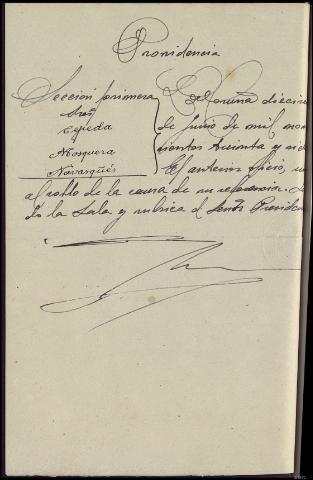 Providencia
Sección primera
Cepeda
Mosquera
Navarqués
de junio de mil nove
cientos treinta y
El anterior oficio,
al rollo de la causa de su referencia.
do la Sala y rubrica el Señor Presiden